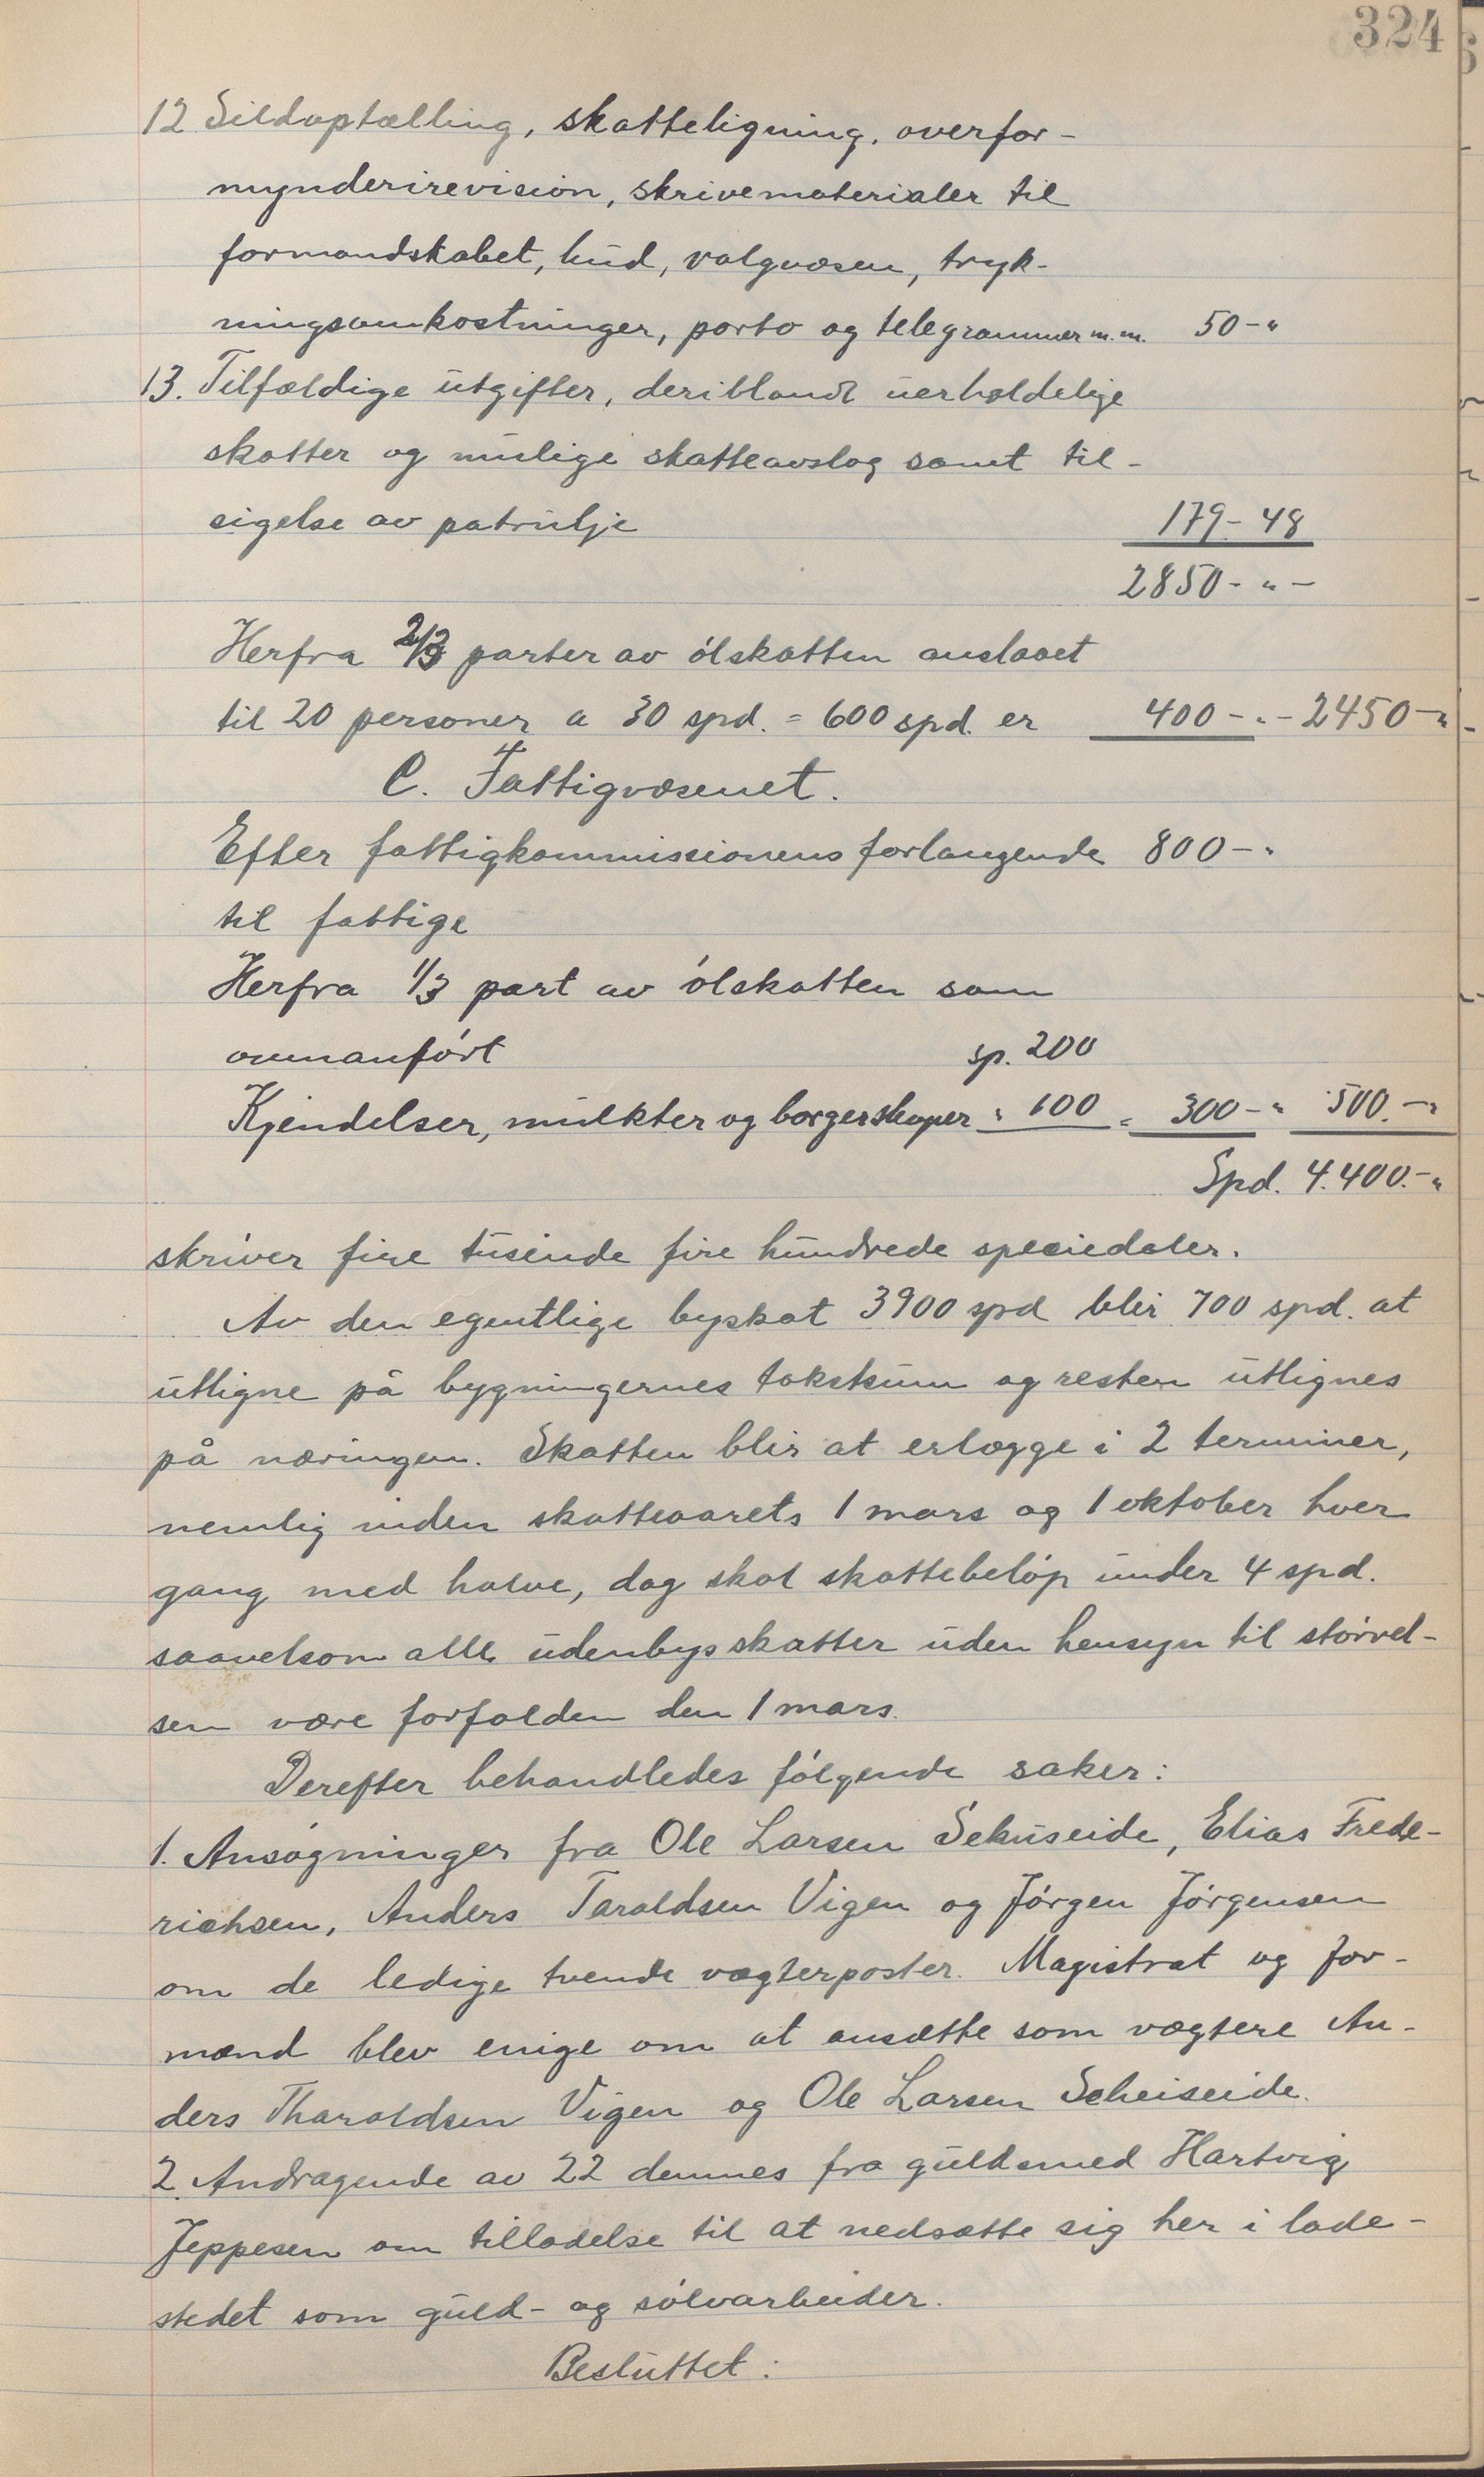 324
12 Sildoptælling, skatteligning, overfor-
mynderirevision, skrivematerialer til
formandskabet, bud, valgvæsen, tryk-
ningsomkostninger, porto og telegrammer m.m. 50-"
13. Tilfældige utgifter, deriblandt uerholdelige
skatter og mulige skatteavslag samt til-
sigelse av patrulje 179-48
2850-"-
Herfra 2/3 parter av ölskatten anslaaet
til 20 personer a 30 spd. = 600 spd. er 400-"- 2450-"
C. Fattigvæsenet.
Efter fattigkommissionens forlangende 800-"
til fattige
Herfra 1/3 part av ölskatten som
ovenanført sp. 200
Kjendelser, mulkter og borgerskaper " 100 = 300-" 500.-"
Spd. 4.400.-"
skriver fire tusinde fire hundrede speciedaler.
Av den egentlige byskat 3900 spd blir 700 spd. at
utligne på bygningernes takstsum og resten utlignes
på næringen. Skatten blir at erlægge i 2 terminer,
nemlig inden skatteaarets 1 mars og 1 oktober hver
gang med halve, dog skal skattebeløp under 4 spd.
saavelsom alle udenbysskatter uden hensyn til størrel-
sen være forfalden den 1 mars.
Derefter behandledes følgende saker:
1. Ansøgninger fra Ole Larsen Sekuseide, Elias Frede-
richsen, Anders Taraldsen Vigen og Jørgen Jørgensen
om de ledige tvende vægterposter. Magistrat og for-
mænd blev enige om at ansætte som vægtere An-
ders Tharaldsen Vigen og Ole Larsen Scheiseide.
2. Andragende av 22 dennes fra guldsmed Hartvig
Jeppesen om tilladelse til at nedsætte sig her i lade-
stedet som guld- og sølvarbeider.
Besluttet: